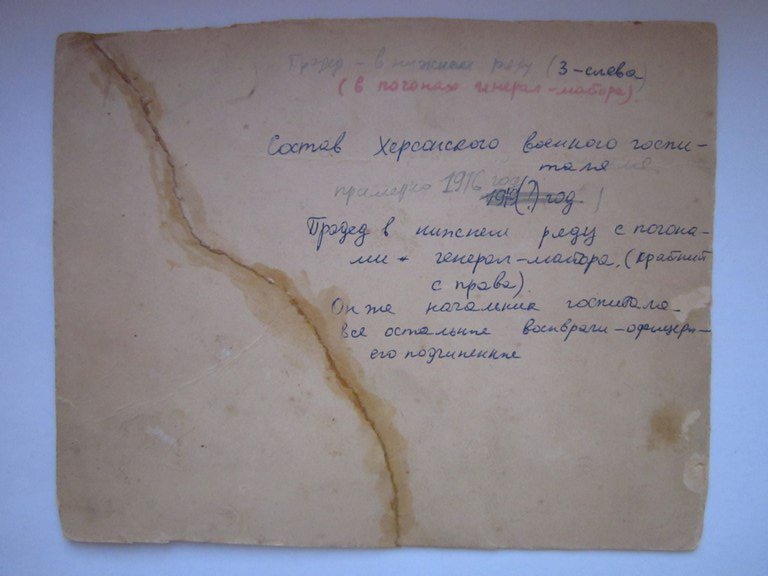 Прадед - в нижнем ряду (3-слева)
(в погонах генерал-майора).
Состав Херсонского военного госпи-
таля
примерно 1916 году
1919(?) год )
Прадед в нижнем ряду с погона-
ми - генерал-майора, (крайний
с права).
Он же начальник госпиталя
все остальные воен врачи - офицеры -
его подчиненные